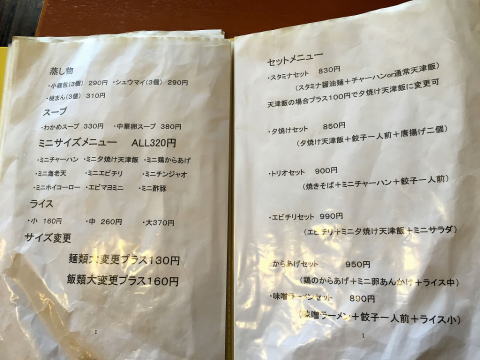 蒸し物
・小籠包(3個) 290円 ・シュウマイ(3個) 290円
・桃まん(3個) 310円
スープ
・わかめスープ 330円 ・中華卵スープ 380円
ミニサイズメニュー ALL320円
・ミニチャーハン ・ミニタ焼け天津飯 ・ミニ鶏からあげ
・ミニ海老天 ・ミニエビチリ ・ミニチンジャオ
・ミニホイコーロー ・エビマヨミニ ・ミニ酢豚
ライス
・小 160円 ・中 260円 ・大370円
サイズ変更
麺類大変更プラス130円
飯類大変更プラス160円
1
セットメニュー
・スタミナセット 830円
(スタミナ醤油麺＋チャーハンor通常天津飯)
天津飯の場合プラス100円で夕焼け天津飯に変更可
・夕焼けセット 850円
(夕焼け天津飯＋餃子一人前＋唐揚げ二個)
・トリオセット 900円
(焼きそば＋ミニチャーハン＋餃子一人前)
・エビチリセット 990円
(エビチリ＋ミニ夕焼け天津飯＋ミニサラダ)
からあげセット 950円
(鶏のからあげ＋ミニ卵あんかけ＋ライス中)
・味噌ラーメンセット 890円
(味噌ラーメン＋餃子一人前＋ライス小)
1